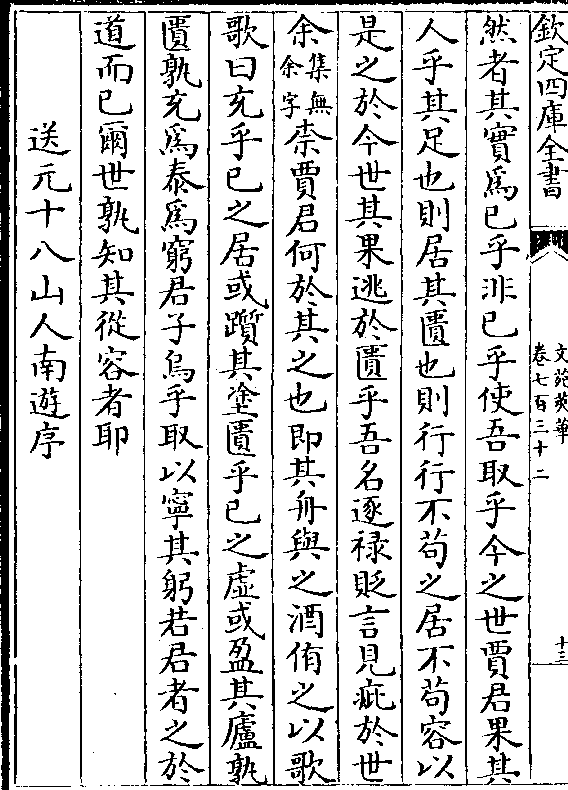 欽定四庫全書
文苑英華
卷七百三十二
十三
然者其實為已乎非已乎使吾取乎今之世賈君果其
人乎其足也則居其匱也則行行不苟之居不苟容以
是之於今世其果逃於匱乎吾名逐禄貶言見疵於世
余集無余字柰賈君何於其之也即其舟與之酒侑之以歌
歌曰充乎已之居或躓其塗匱乎已之虛或盈其廬孰
匱孰充為泰為窮君子烏乎取以寧其躬若君者之於
道而已爾世孰知其從容者耶
送元十八山人南遊序